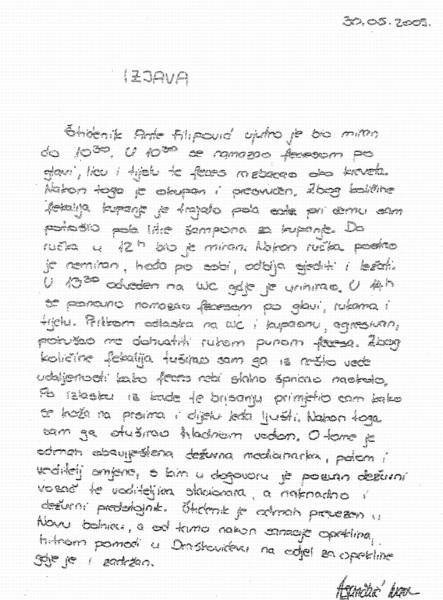 30.05.2009.
IZJAVA
Štićenik Ante Filipović ujutro je bio miran
do 10³⁰. U 10³⁰ se namazao fecesom po
glavi, licu i tijelu te feces razbacao oko kreveta.
Nakon toga je okupan i presvučen. Zbog količine
fekalija kupanje je trajalo pola sata pri čemu sam
potrošio pola litre šampona za kupanje. Do
ručka u 12h bio je miran. Nakon ručka postao
je nemiran, hoda po sobi, odbija sjediti i ležati.
U 13³⁰ odveden na WC gdje je urinirao. U 14h
se ponovno namazao fecesom po glavi, rukama i
tijelu. Prilikom odlaska na WC i kupaonu, agresivan,
pokušao me dohvatiti rukom punom fecesa. Zbog
količine fekalija tuširao sam ga iz nešto veće
udaljenosti kako feces nebi stalno špricao naokolo.
Po izlasku iz kade te brisanju primjetio sam kako
se koža na prsima i dijelu leđa ljušti. Nakon toga
sam ga otuširao hladnom vodom. O tome je
odmah obaviještena dežurna med. sestra, potom i
voditelj smjene, s kim u dogovoru je pozvan dežurni
vozač te voditeljica stacionara, a naknadno i
dežurni predstojnik. Štićenik je odmah prevezen u
Novu bolnicu, a od tamo nakon sanacije opeklina,
hitnom pomoći u Draškovićevu na odjel za opekline
gdje je i zadržan.